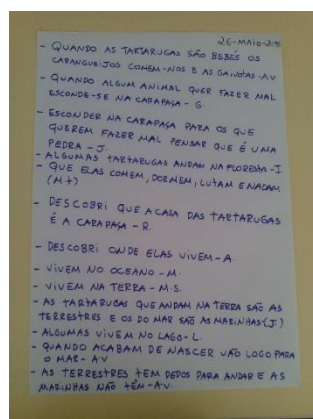 26-MAIO-2016
- QUANDO AS TARTARUGAS SÃO BEBÉS OS
CARANGUEIJOS COMEM-NOS E AS GAIVOTAS-AV
- QUANDO ALGUM ANIMAL QUER FAZER MAL
ESCONDE-SE NA CARAPAÇA - G.
- ESCONDER NA CARAPAÇA PARA OS QUE
QUEREM FAZER MAL PENSAR QUE É UMA
PEDRA - J.
- ALGUMAS TARTARUGAS ANDAM NA FLORESTA-I.
- QUE ELAS COMEM, DORMEM, LUTAM E NADAM
(M+)
- DESCOBRI QUE A CASA DAS TARTARUGAS
É A CARAPAÇA - R.
- DESCOBRI ONDE ELAS VIVEM-A.
- VIVEM NO OCEANO - M.
- VIVEM NA TERRA - M.S.
- AS TARTARUGAS QUE ANDAM NA TERRA SÃO AS
TERRESTRES E OS DO MAR SÃO AS MARINHAS(J.)
- ALGUMAS VIVEM NO LAGO-L.
- QUANDO ACABAM DE NASCER VÃO LOGO PARA
O MAR-AV
- AS TERRESTRES TEM DEDOS PARA ANDAR E AS
MARINHAS NÃO TÊM-AV.